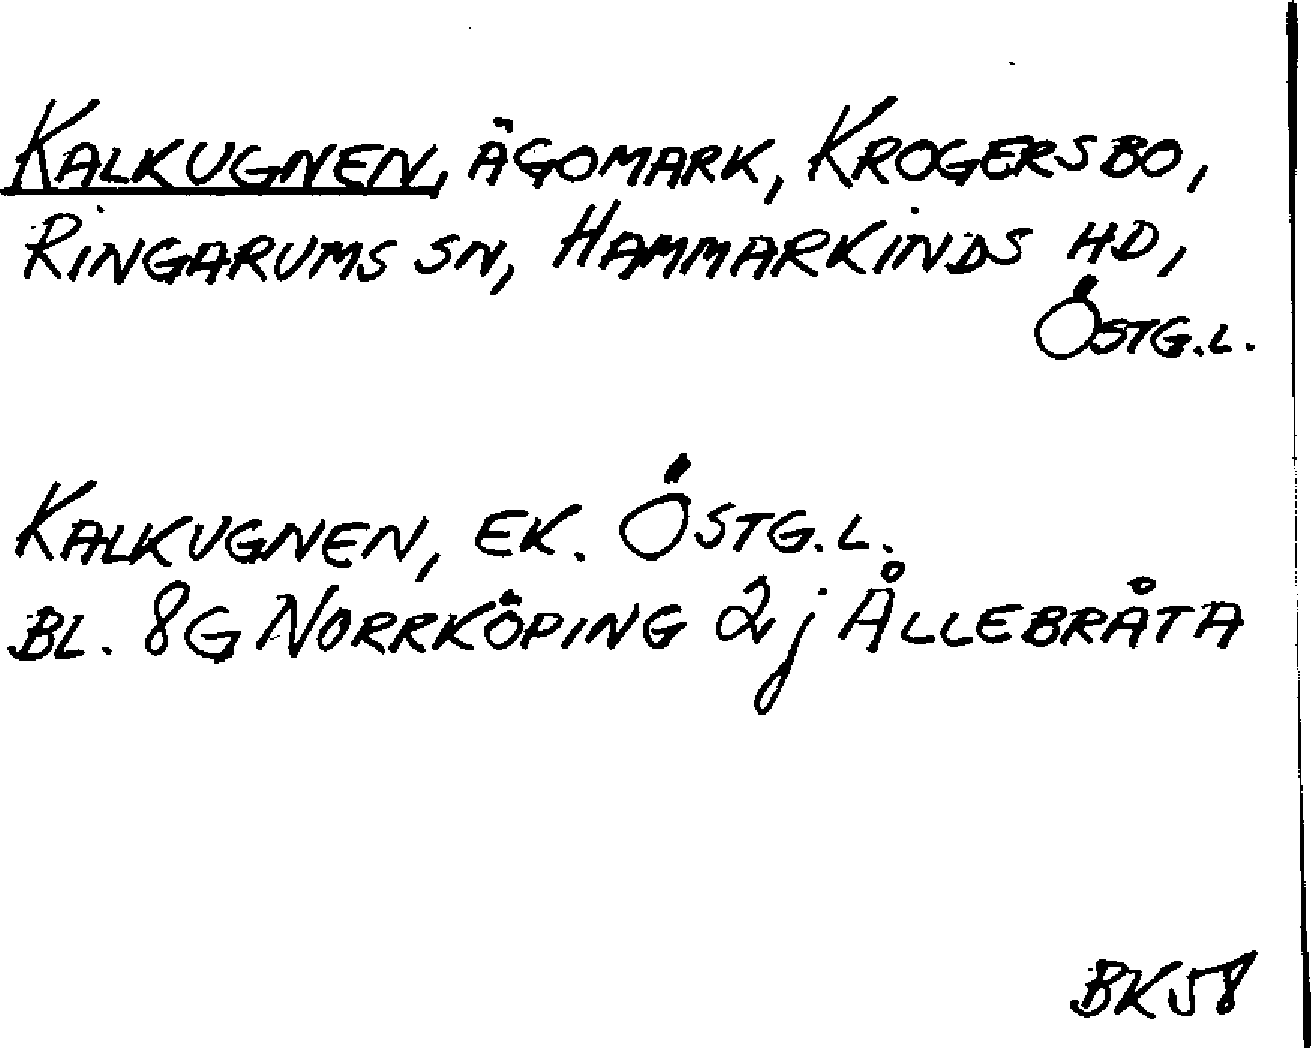 KALKUGNEN, ÄGOMARK, KROGERSBO,
RINGARUMS SN, HAMMARKINDS HD,
ÖSTG.L.
KALKUGNEN, EK. ÖSTG.L.
BL. 8G NORRKÖPING 2j ÅLLEBRÅTA
BK58